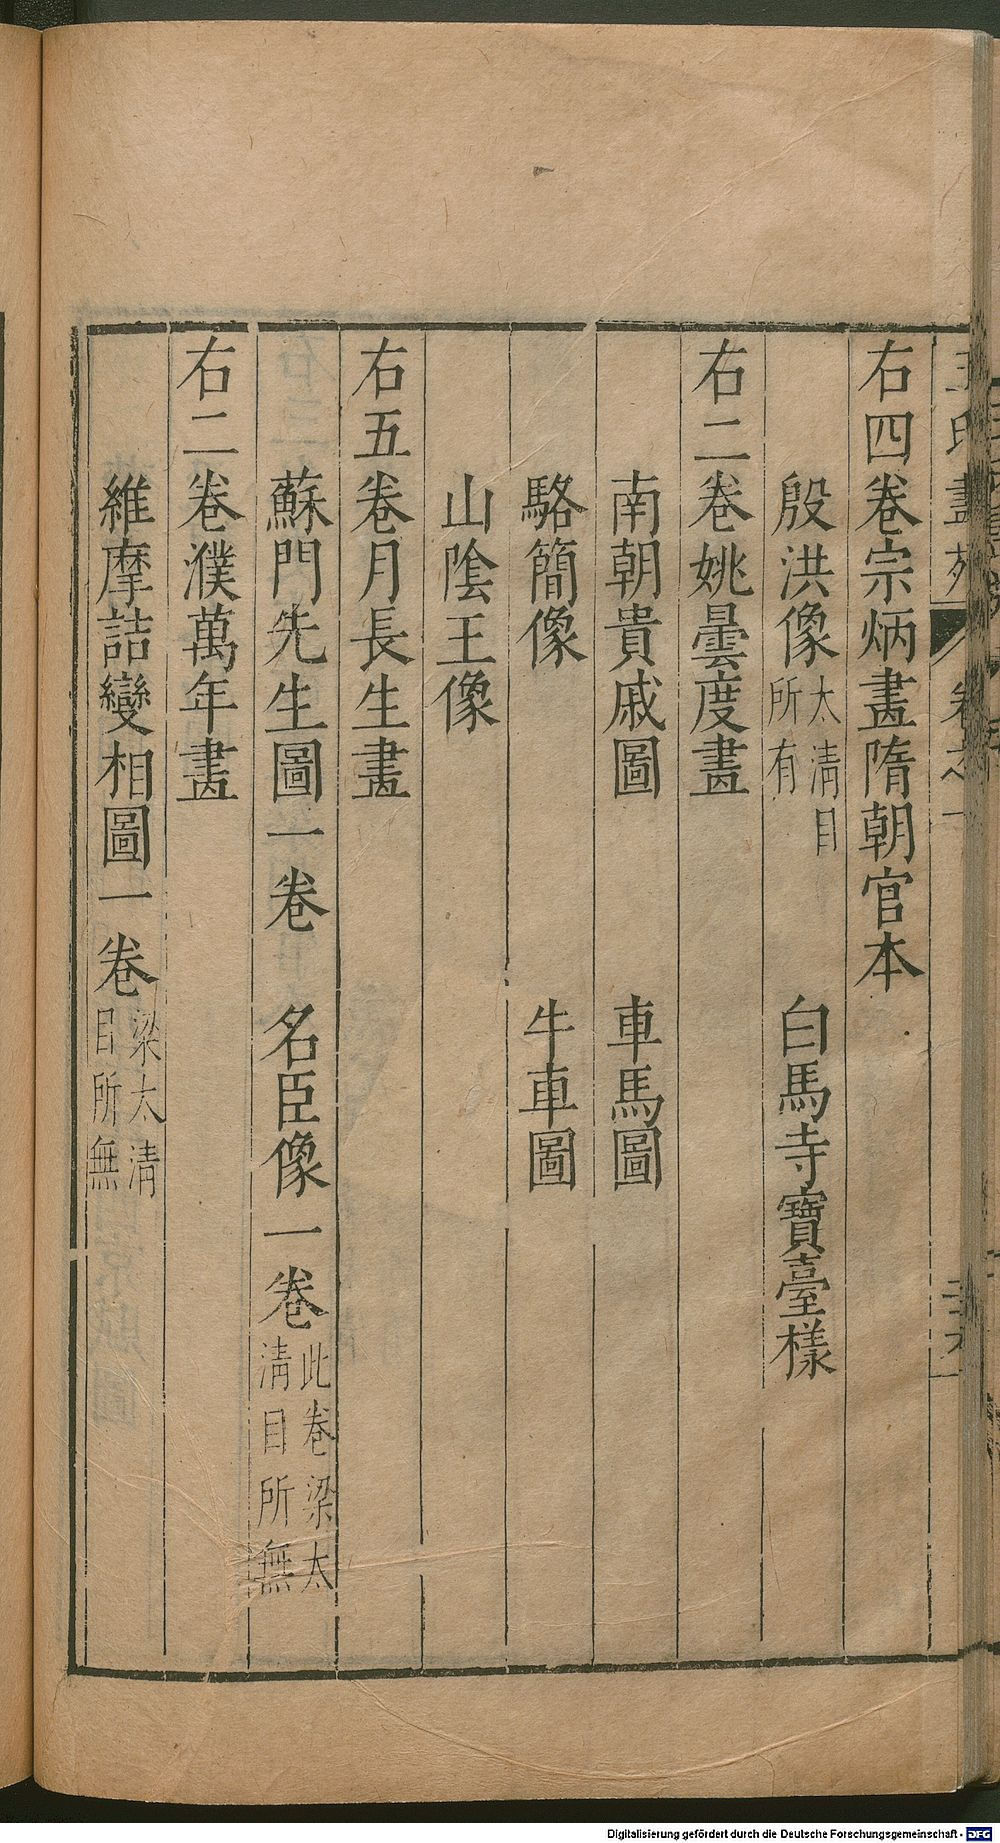 王氏畫苑 卷之一
右四卷宗炳畫隋朝官本
殷洪像太清目所有 白馬寺寶臺樣
右二卷姚曇度畫
南朝貴戚圖 車馬圖
駱簡像 牛車圖
山陰王像
右五卷月長生畫
蘇門先生圖一卷 名臣像一卷此卷梁太清目所無
右二卷濮萬年畫
維摩詰變相圖一卷梁太清目所無
Digitalisierung gefördert durch die Deutsche Forschungsgemeinschaft - DFG